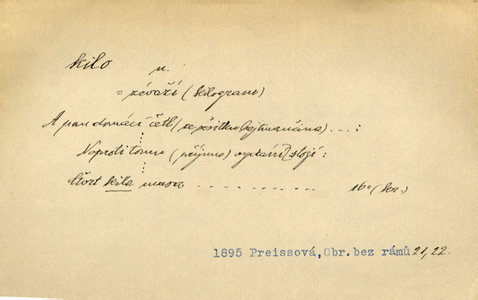 kilo n.
= závaží (kilogram)
A pan domácí četl (ze sešitku Hejtmančina) . . . :
Naproti tomu (příjmu) vydání stojí :
Čtvrt kila masa . . . . . . . . . . 16 (kr.)
1895 Preissová, Obr. bez rámů 21, 22.